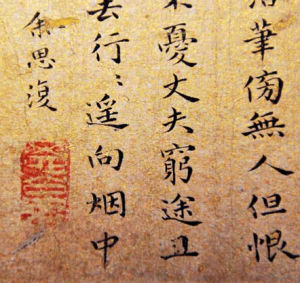 筆傍無人但恨
憂丈夫窮途且
去行〻遥向烟中
余思復